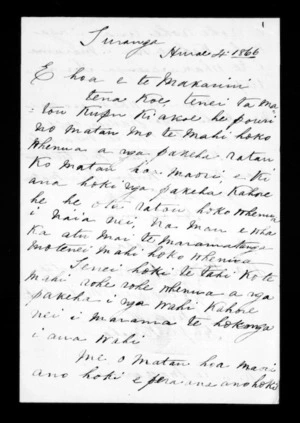 1
Turanga
Hurae 4. 1866
E hoa e te Makarini
tena koe, tenei ta ma
tou kupu ki a koe he pouri
no matau mo te mahi hoko
whenua a nga pakeha ratau
ko matau hoa maori, e ki
ana hoki nga pakeha kahore
he he o te ratou hoko whenua
i naia nei, na mau e wha
ka atu mai te maramatanga
mo tenei mahi hoko whenua
Tenei hoki te tahi ko te
mahi rohe rohe whenua a nga
pakeha i nga wahi kahore
nei i marama te hokonga
i aua wahi
me o matau hoa maori
ano hoki e pera ana ano hoki